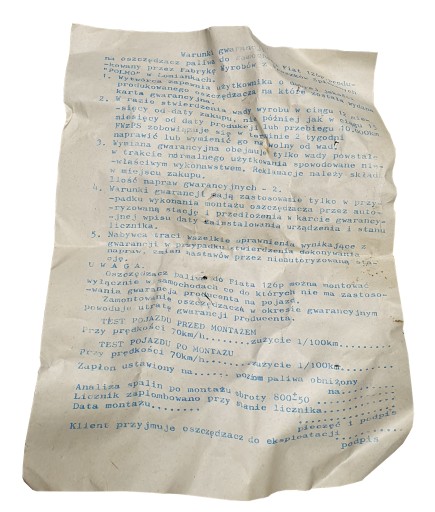 Warunki gwarancji
na oszczędzacz paliwa do Fiata 126p produ-
-kowany przez Fabrykę Wyrobów
"POLMO" w Łomiankach.
1. Wytwórca zapewnia użytkownika o
produkowanego oszczędzacza na który została wydana
karta gwarancyjna.
2. W razie stwierdzenia wady wyrobu w ciągu
-sięcy od daty zakupu, nie później jak w ciągu
miesięcy od daty produkcji lub przebiegu 10.000km
FWZPS zobowiązuje się w terminie 2 tygodni
naprawić lub wymienić go na wolny od wad.
3. Wymiana gwarancyjna obejmuje tylko wady powstałe
w trakcie normalnego użytkowania spowodowane nie-
-właściwym wykonawstwem. Reklamacje należy składać
w miejscu zakupu.
Ilość napraw gwarancyjnych - 2.
4. Warunki gwarancji mają zastosowanie tylko w przy-
padku wykonania montażu oszczędzacza przez auto-
ryzowaną stację i przedłożenia w karcie gwarancyj-
nej wpisu daty zainstalowania urządzenia i stanu
licznika.
5. Nabywca traci wszelkie uprawnienia wynikające z
gwarancji w przypadku stwierdzenia dokonywania
napraw zmian nastawów przez nieautoryzowaną sta-
cję.
U W A G A.
Oszczędzacz paliwa do Fiata 126p można montować
wyłącznie w samochodach co do których nie ma zastoso-
-wania gwarancja producenta na pojazd.
Zamontowanie oszczędzacza w okresie gwarancyjnym
powoduje utratę gwarancji producenta.
TEST POJAZDU PRZED MONTAŻEM
Przy prędkości 70km/h........zużycie l/100km.......
TEST POJAZDU PO MONTAŻU
Przy prędkości 70km/h........zużycie l/100km.......
Zapłon ustawiony na...... poziom paliwa obniżony
na..........
Analiza spalin po montażu obroty 800±50
Licznik zaplombowano przy stanie licznika..........
Data montażu........ ..........
pieczęć i podpis
Klient przyjmuje oszczędzacz do eksploatacji..........
podpis